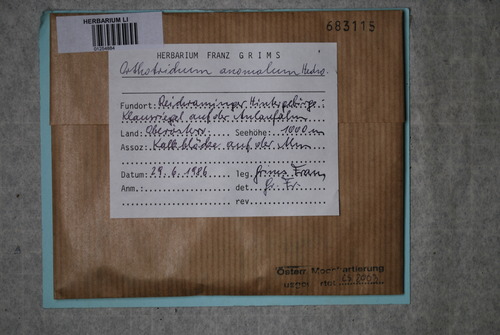 HERBARIUM LI
683115
HERBARIUM FRANZ GRIMS
Orthotrichum anomalum Hedw.
Fundort: Reichraminger Hintergebirge:
auf der Anlaufalm
Land: Oberösterr. Seehöhe: 1000 m
Assoz: Kalkblöcke auf der Alm
Datum: 29.6.1986 leg. Grims Franz
Anm.: det. Gr. Fr.
rev.
Österr. Moos kartierung